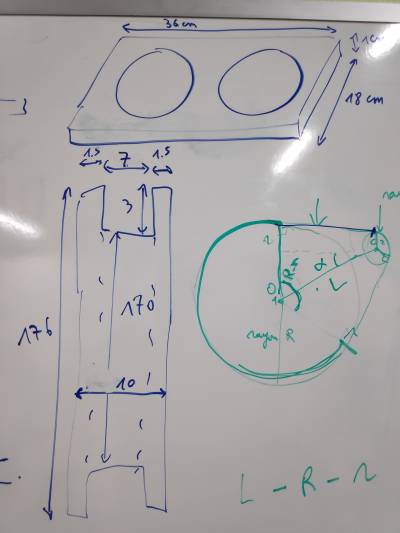 36cm
1cm
18 cm
1.5
7
1.5
3
170
176
10
R-r
L
O
rayon R
L - R - r